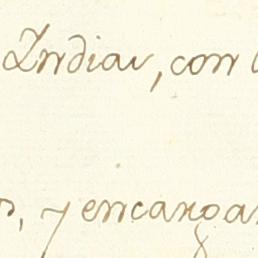 Indias, con
, y encarga